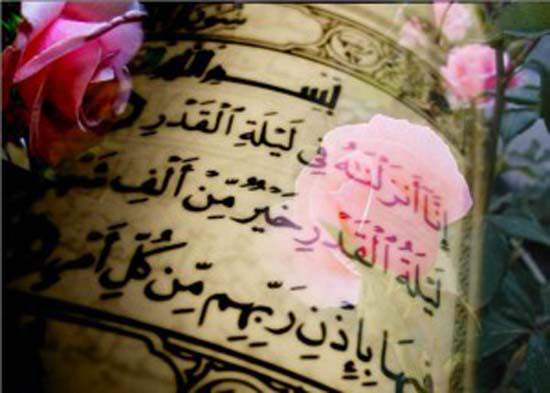 سورة
بِسْمِ ٱللَّهِ
إِنَّآ أَنزَلْنَٰهُ فِى لَيْلَةِ ٱلْقَدْرِ
لَيْلَةُ ٱلْقَدْرِ خَيْرٌ مِّنْ أَلْفِ شَهْرٍ
فِيهَا بِإِذْنِ رَبِّهِم مِّن كُلِّ أَمْرٍ